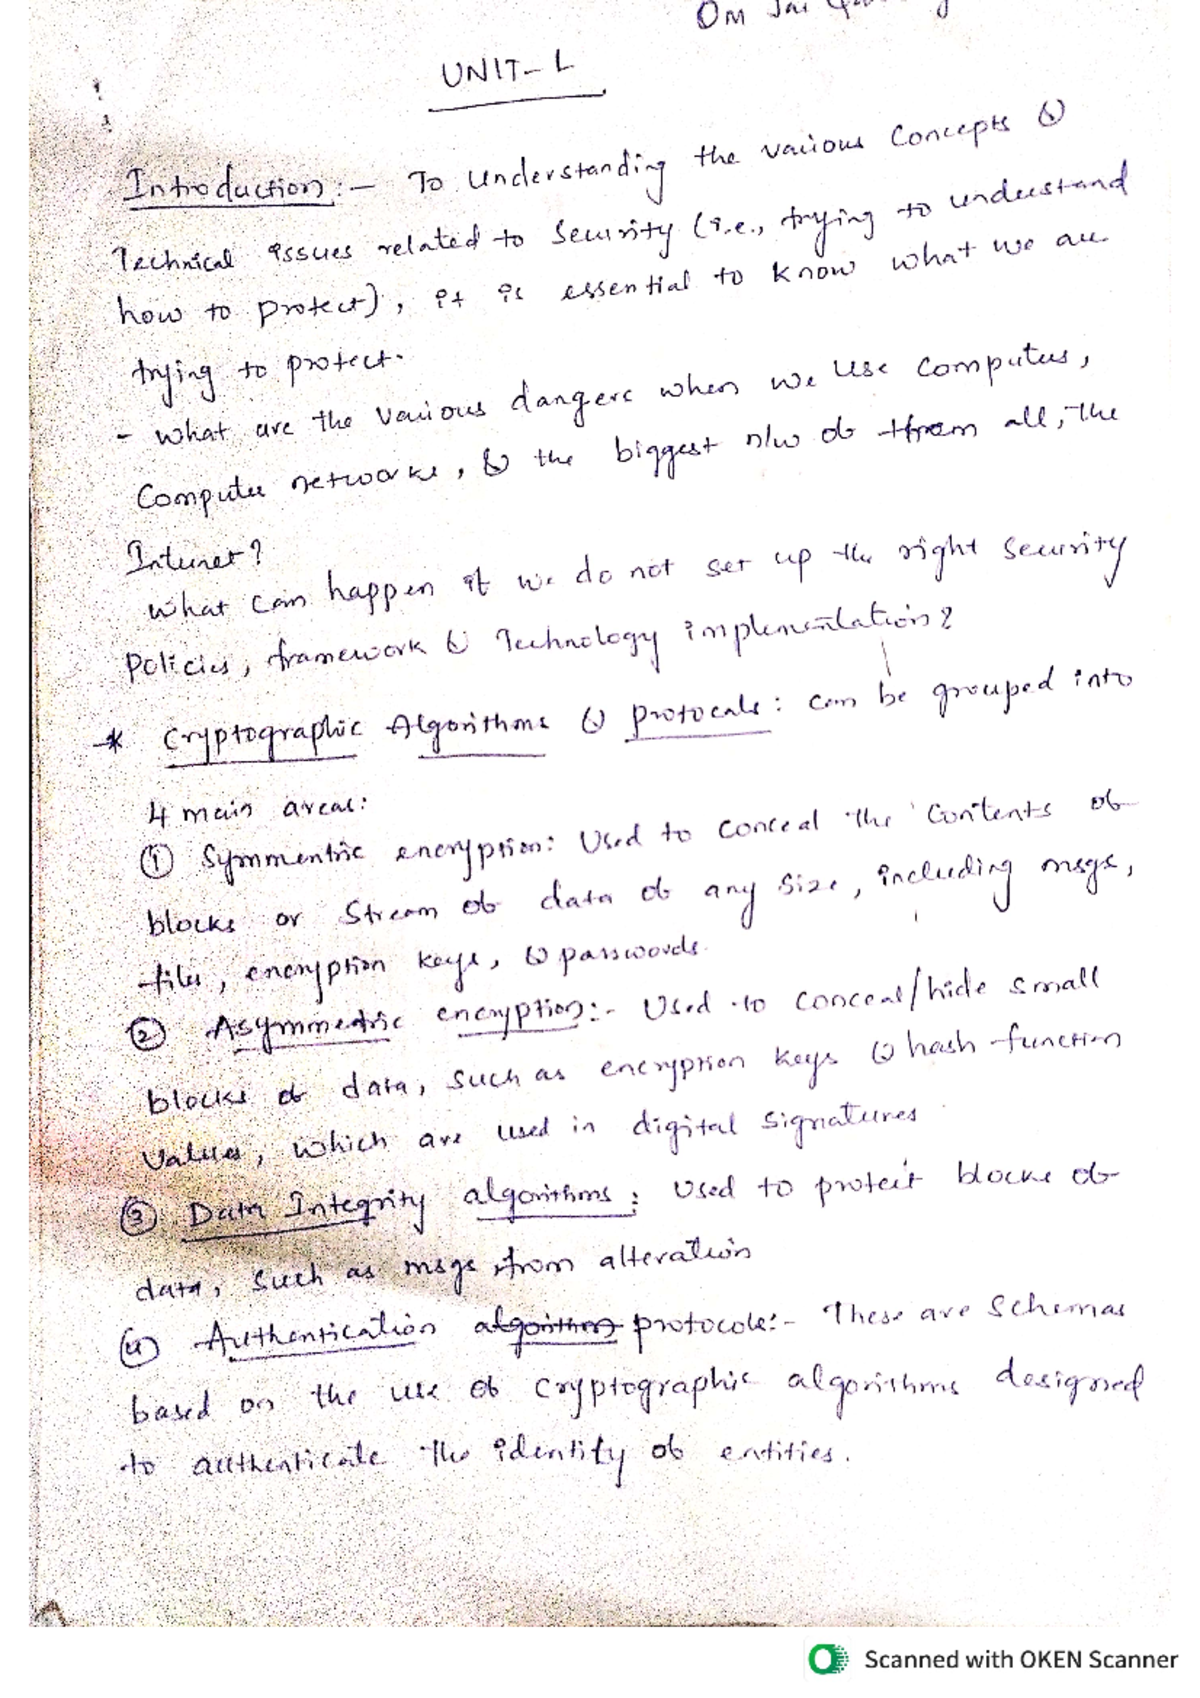 Om Jai
UNIT-L
Introduction:- To Understanding the various Concepts &
Technical issues related to Security (i.e., trying to understand
how to protect), it is essential to know what we are
trying to protect.
- what are the various dangers when we use computers,
Computer networks, & the biggest n/w of them all, the
Internet?
what can happen if we do not set up the right security
Policies, framework & Technology implementation?
* Cryptographic Algorithms & protocals: can be grouped into
4 main areas:
① Symmentric encryption: Used to conceal the Contents of
blocks or Stream of data of any size, including msgs,
files, encryption keys, & passwords.
② Asymmetric encryption:- Used to conceal/hide small
blocks of data, such as encryption keys & hash-function
values, which are used in digital signatures
③ Data Integrity algorithms: Used to protect blocks of
data, such as msgs from alteration
④ Authentication algorithms protocols:- These are schemas
based on the use of cryptographic algorithms designed
to authenticate the identity of entities.
Scanned with OKEN Scanner